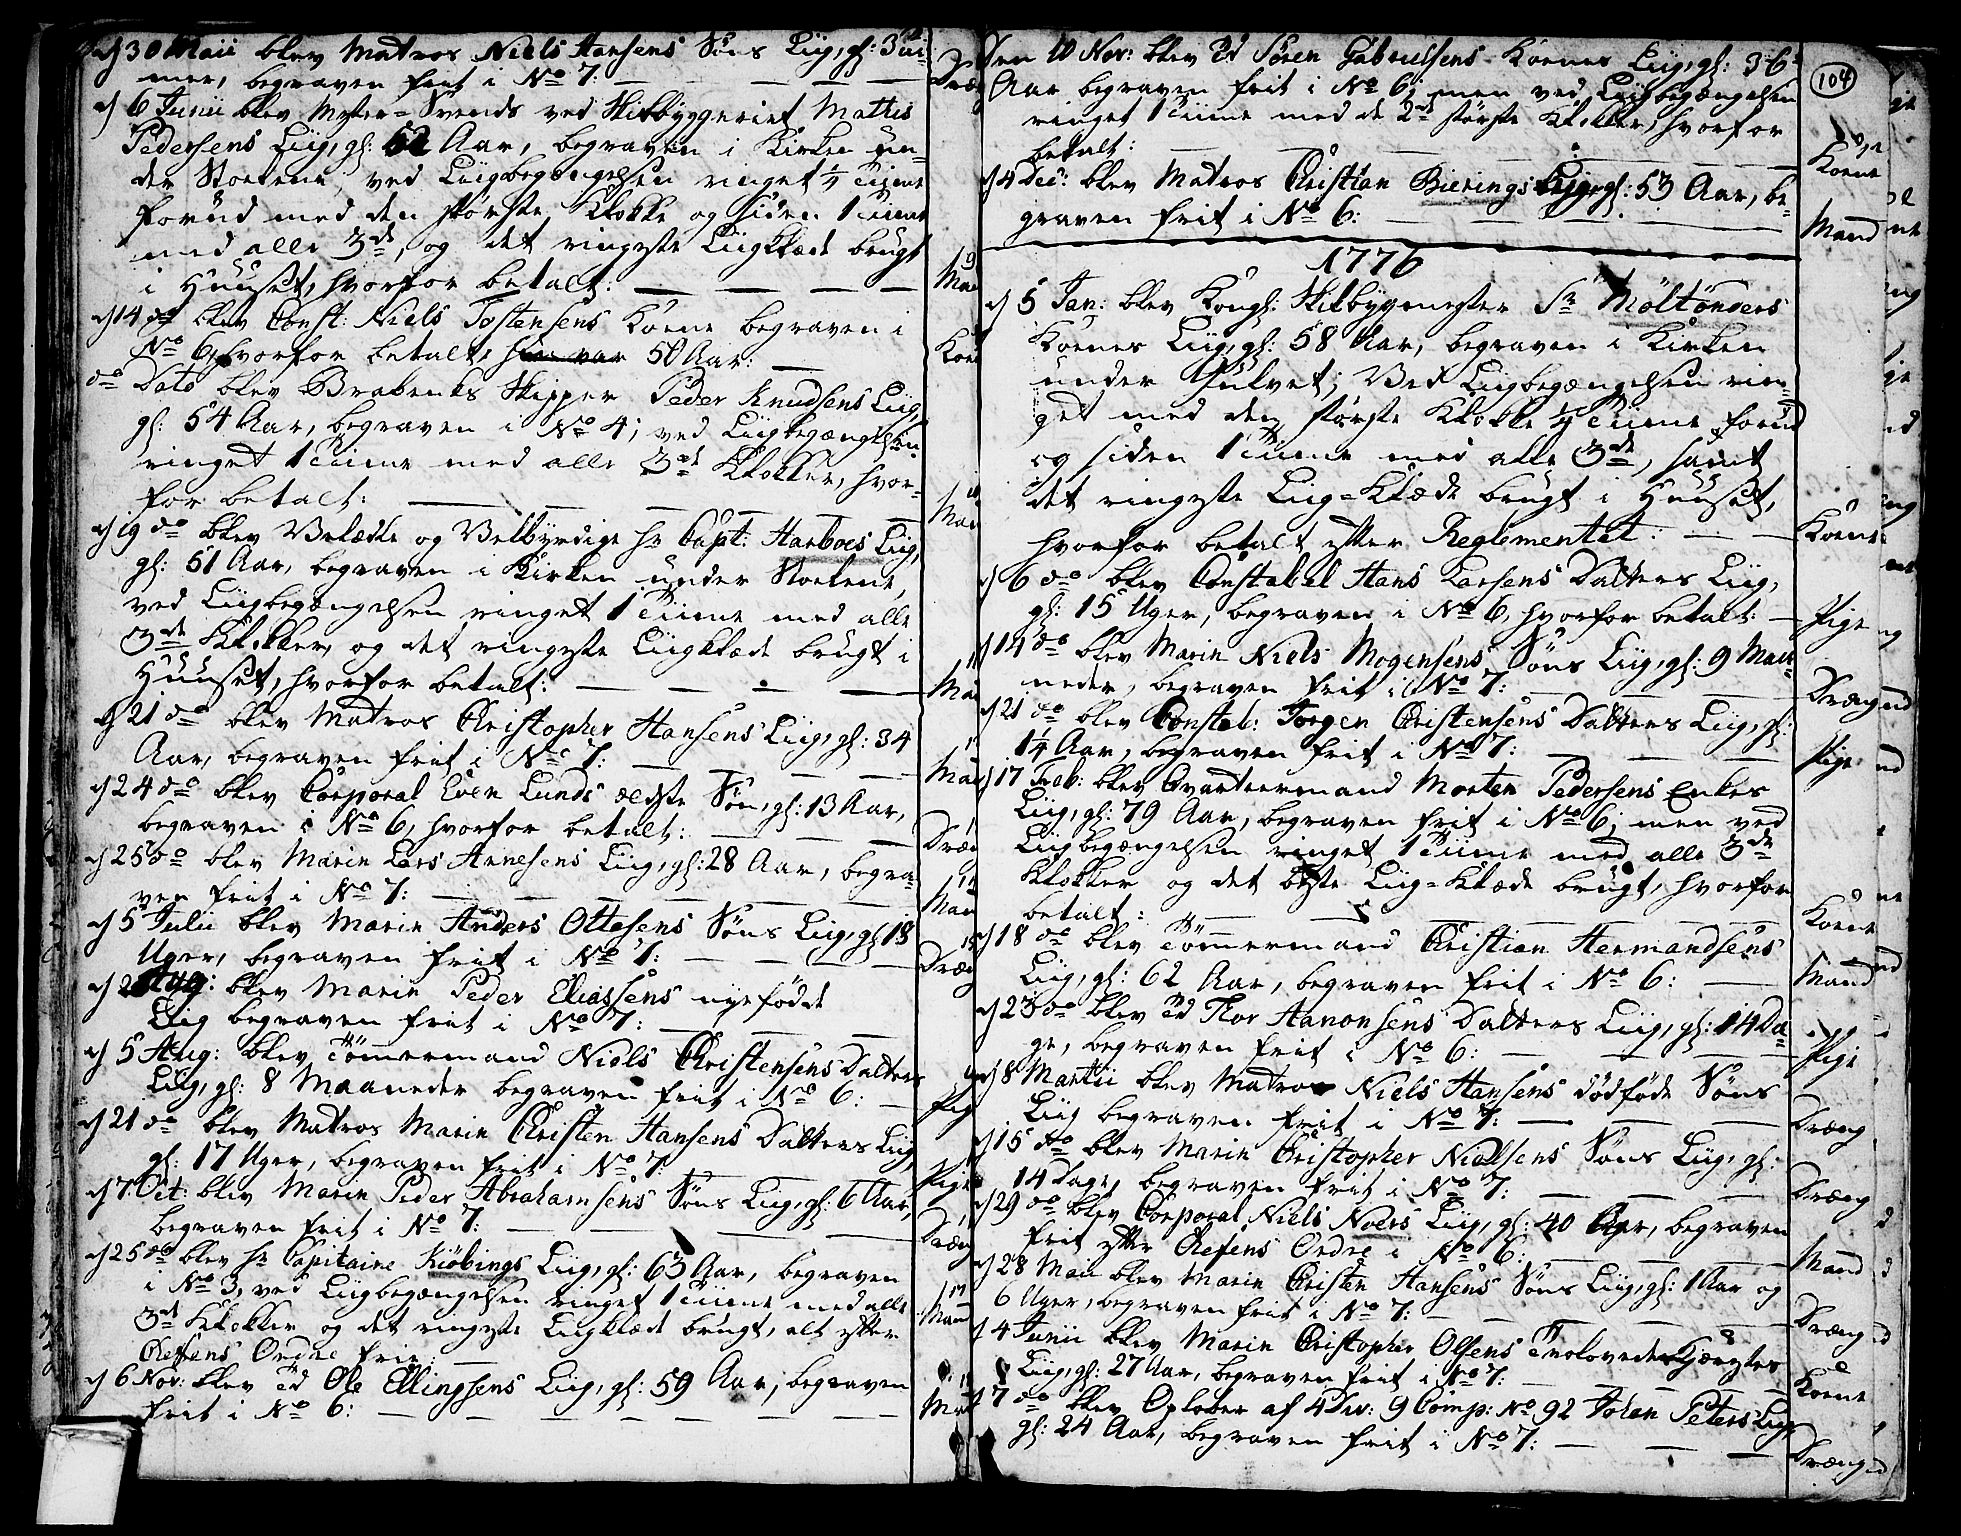 d 30 Maii blev Matros Niels Hansens Søns Liig, gl: 3 Tii-
mer, begraven frit i No 7:
d 6 Junii blev Mester-Svends ved Skibbyggeriet Mattis
Pedersens Liig, gl: 62 Aar, begraven i Kirken un-
der Stoelene, ved Liigbegengelsen ringet ½ Tiime
forud med den største Klokke og siden 1 Tiime
med alle 3de, og det ringeste Liigklæde brugt
i Huuset, hvorfor betalt:
d 14 do blev Const: Niels Tostensens Kone begraven i
No 6, hvorfor betalt, 50 Aar:
do Dato blev Brabenks Skipper Peder Knudsens Liig,
gl: 54 Aar, begraven i No 4; ved Liigbegængelsen
ringet 1 Tiime med alle 3de Klokker, hvor-
for betalt:
d 19 do blev Velædle og Velbyrdige Hr Capt: Harboes Liig,
gl: 51 Aar, begraven i Kirken under Stoelene,
ved Liigbegængelsen ringet 1 Tiime med alle
3de Klokker, og det ringeste Liigklæde brugt i
Huuset, hvorfor betalt:
d 21 do blev Matros Christopher Hansens Liig, gl: 34
Aar, begraven frit i No 7:
d 24 do blev Corporal Even Lunds ældste Søn, gl: 13 Aar,
begraven i No 6, hvorfor betalt:
d 25 do blev Marin Lars Arnesens Liig, gl: 28 Aar, begra-
ven frit i No 7:
d 5 Julii blev Marin Anders Ottesens Søns Liig, gl 13
Uger, begraven frit i No 7:
d 2 Aug: blev Marin Peder Eliassens nyefødt
Liig begraven frit i No 7:
d 5 Aug: blev Tømmermand Niels Christensens Datters
Liig, gl: 8 Maaneder begraven frit i No 6:
d 21 do blev Matros Marin Christen Hansens Datters Liig,
gl: 17 Uger, begraven frit i No 7:
d 7 Oct: blev Marin Peder Abrahamsens Søns Liig, gl: 6 Aar,
begraven frit i No 7:
d 25 do blev Hr Capitaine Kiøbings Liig, gl: 63 Aar, begraven
i No 3, ved Liigbegængelsen ringet 1 Tiime med alle
3de Klokker og det ringeste Liigklæde brugt, alt efter
Chefens Ordre frie:
d 6 Nov: blev Td Ole Ellingsens Liig, gl: 59 Aar, begraven
frit i No 6:
Den 10 Nov: blev Td Søren Gabrielsens Kones Liig, gl: 36
Aar begraven frit i No 6, men ved Liigbegængelsen
ringet 1 Tiime med de 2de største Klokker, hvorfor
betalt:
d 4 Dec: blev Matros Christian Bierings Liig, gl: 53 Aar, be-
graven frit i No 6:
1776
d 5 Jan: blev Kongl: Skibbygmester Sr Møltønders
Kones Liig, gl: 58 Aar, begraven i Kirken
under Gulvet; Ved Liigbegængelsen rin-
get med den største Klokke ½ Tiime forud
og siden 1 Tiime med alle 3de, samt
det ringeste Liig-Klæde brugt i Huuset,
hvorfor betalt efter Reglementet:
d 6 do blev Constabel Hans Larsens Datters Liig,
gl: 15 Uger, begraven i No 6, hvorfor betalt:
d 14 do blev Marin Niels Mogensens Søns Liig, gl: 9 Maa-
neder, begraven frit i No 7:
d 21 do blev Constab: Jørgen Christensens Datters Liig, gl:
1¼ Aar, begraven frit i No 7:
d 17 Feb: blev Qvarteermand Morten Pedersens Enkes
Liig, gl: 79 Aar, begraven frit i No 6; men ved
Liigbegængelsen ringet 1 Tiime med alle 3de
Klokker og det beste Liig-Klæde brugt, hvorfor
betalt:
d 18 do blev Tømmermand Christian Hermandsens
Liig, gl: 62 Aar, begraven frit i No 6:
d 23 do blev Td Thor Aanonsens Datters Liig, gl: 14 Da-
ge, begraven frit i No 6:
d 8 Martii blev Matros Niels Hansens dødføde Søns
Liig begraven frit i No 7:
d 15 do blev Marin Christopher Nielsens Søns Liig, gl:
14 Dage, begraven frit i No 7:
d 29 do blev Corporal Niels Noers Liig, gl: 40 Aar, begraven
frit efter Chefens Ordre i No 6:
d 28 Maii blev Marin Christen Hansens Søns Liig, gl: 1 Aar og
6 Uger, begraven frit i No 7:
d 4 Junii blev Marin Christopher Olsens Trolovede Kjærestes
Liig, gl: 27 Aar, begraven frit i No 7:
d 7 do blev Oplober af 4 Div: 9 Comp: No 92 Johan Peters Liig,
gl: 24 Aar, begraven frit i No 7:
104
Kone
Mand
Kone
Pige
Dræng
Pige
Kone
Mand
Pige
Dræng
Dræng
Mand
Dræng
Kone
Dræng